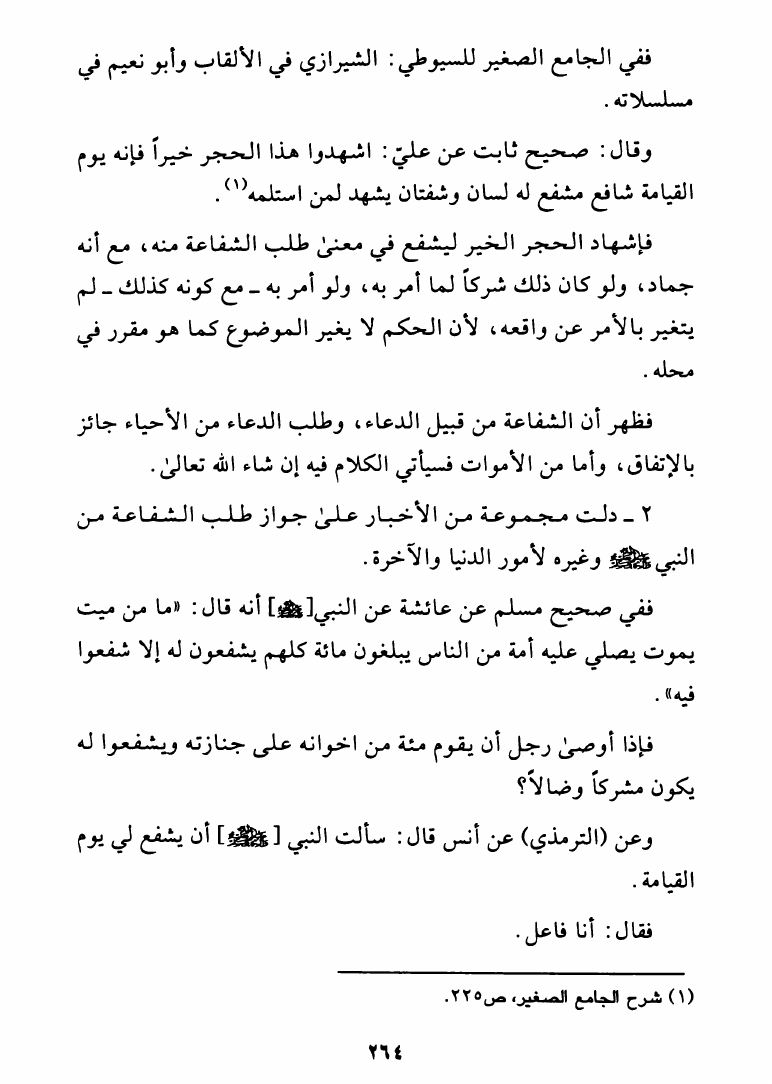 ففي الجامع الصغير للسيوطي: الشيرازي في الألقاب وأبو نعيم في
مسلسلاته.
وقال: صحيح ثابت عن عليّ: اشهدوا هذا الحجر خيراً فإنه يوم
القيامة شافع مشفع له لسان وشفتان يشهد لمن استلمه(١).
فإشهاد الحجر الخير ليشفع في معنىٰ طلب الشفاعة منه، مع أنه
جماد، ولو كان ذلك شركاً لما أمر به، ولو أمر به ـ مع كونه كذلك ـ لم
يتغير بالأمر عن واقعه، لأن الحكم لا يغير الموضوع كما هو مقرر في
محله.
فظهر أن الشفاعة من قبيل الدعاء، وطلب الدعاء من الأحياء جائز
بالإتفاق، وأما من الأموات فسيأتي الكلام فيه إن شاء الله تعالىٰ.
٢ ـ دلت مجموعة من الأخبار علىٰ جواز طلب الشفاعة من
النبي ﷺ وغيره لأمور الدنيا والآخرة.
ففي صحيح مسلم عن عائشة عن النبي [ﷺ] أنه قال: «ما من ميت
يموت يصلي عليه أمة من الناس يبلغون مائة كلهم يشفعون له إلا شفعوا
فيه».
فإذا أوصىٰ رجل أن يقوم مئة من اخوانه على جنازته ويشفعوا له
يكون مشركاً وضالاً؟
وعن (الترمذي) عن أنس قال: سألت النبي [ﷺ] أن يشفع لي يوم
القيامة.
فقال: أنا فاعل.
(١) شرح الجامع الصغير، ص٢٢٥.
٢٦٤